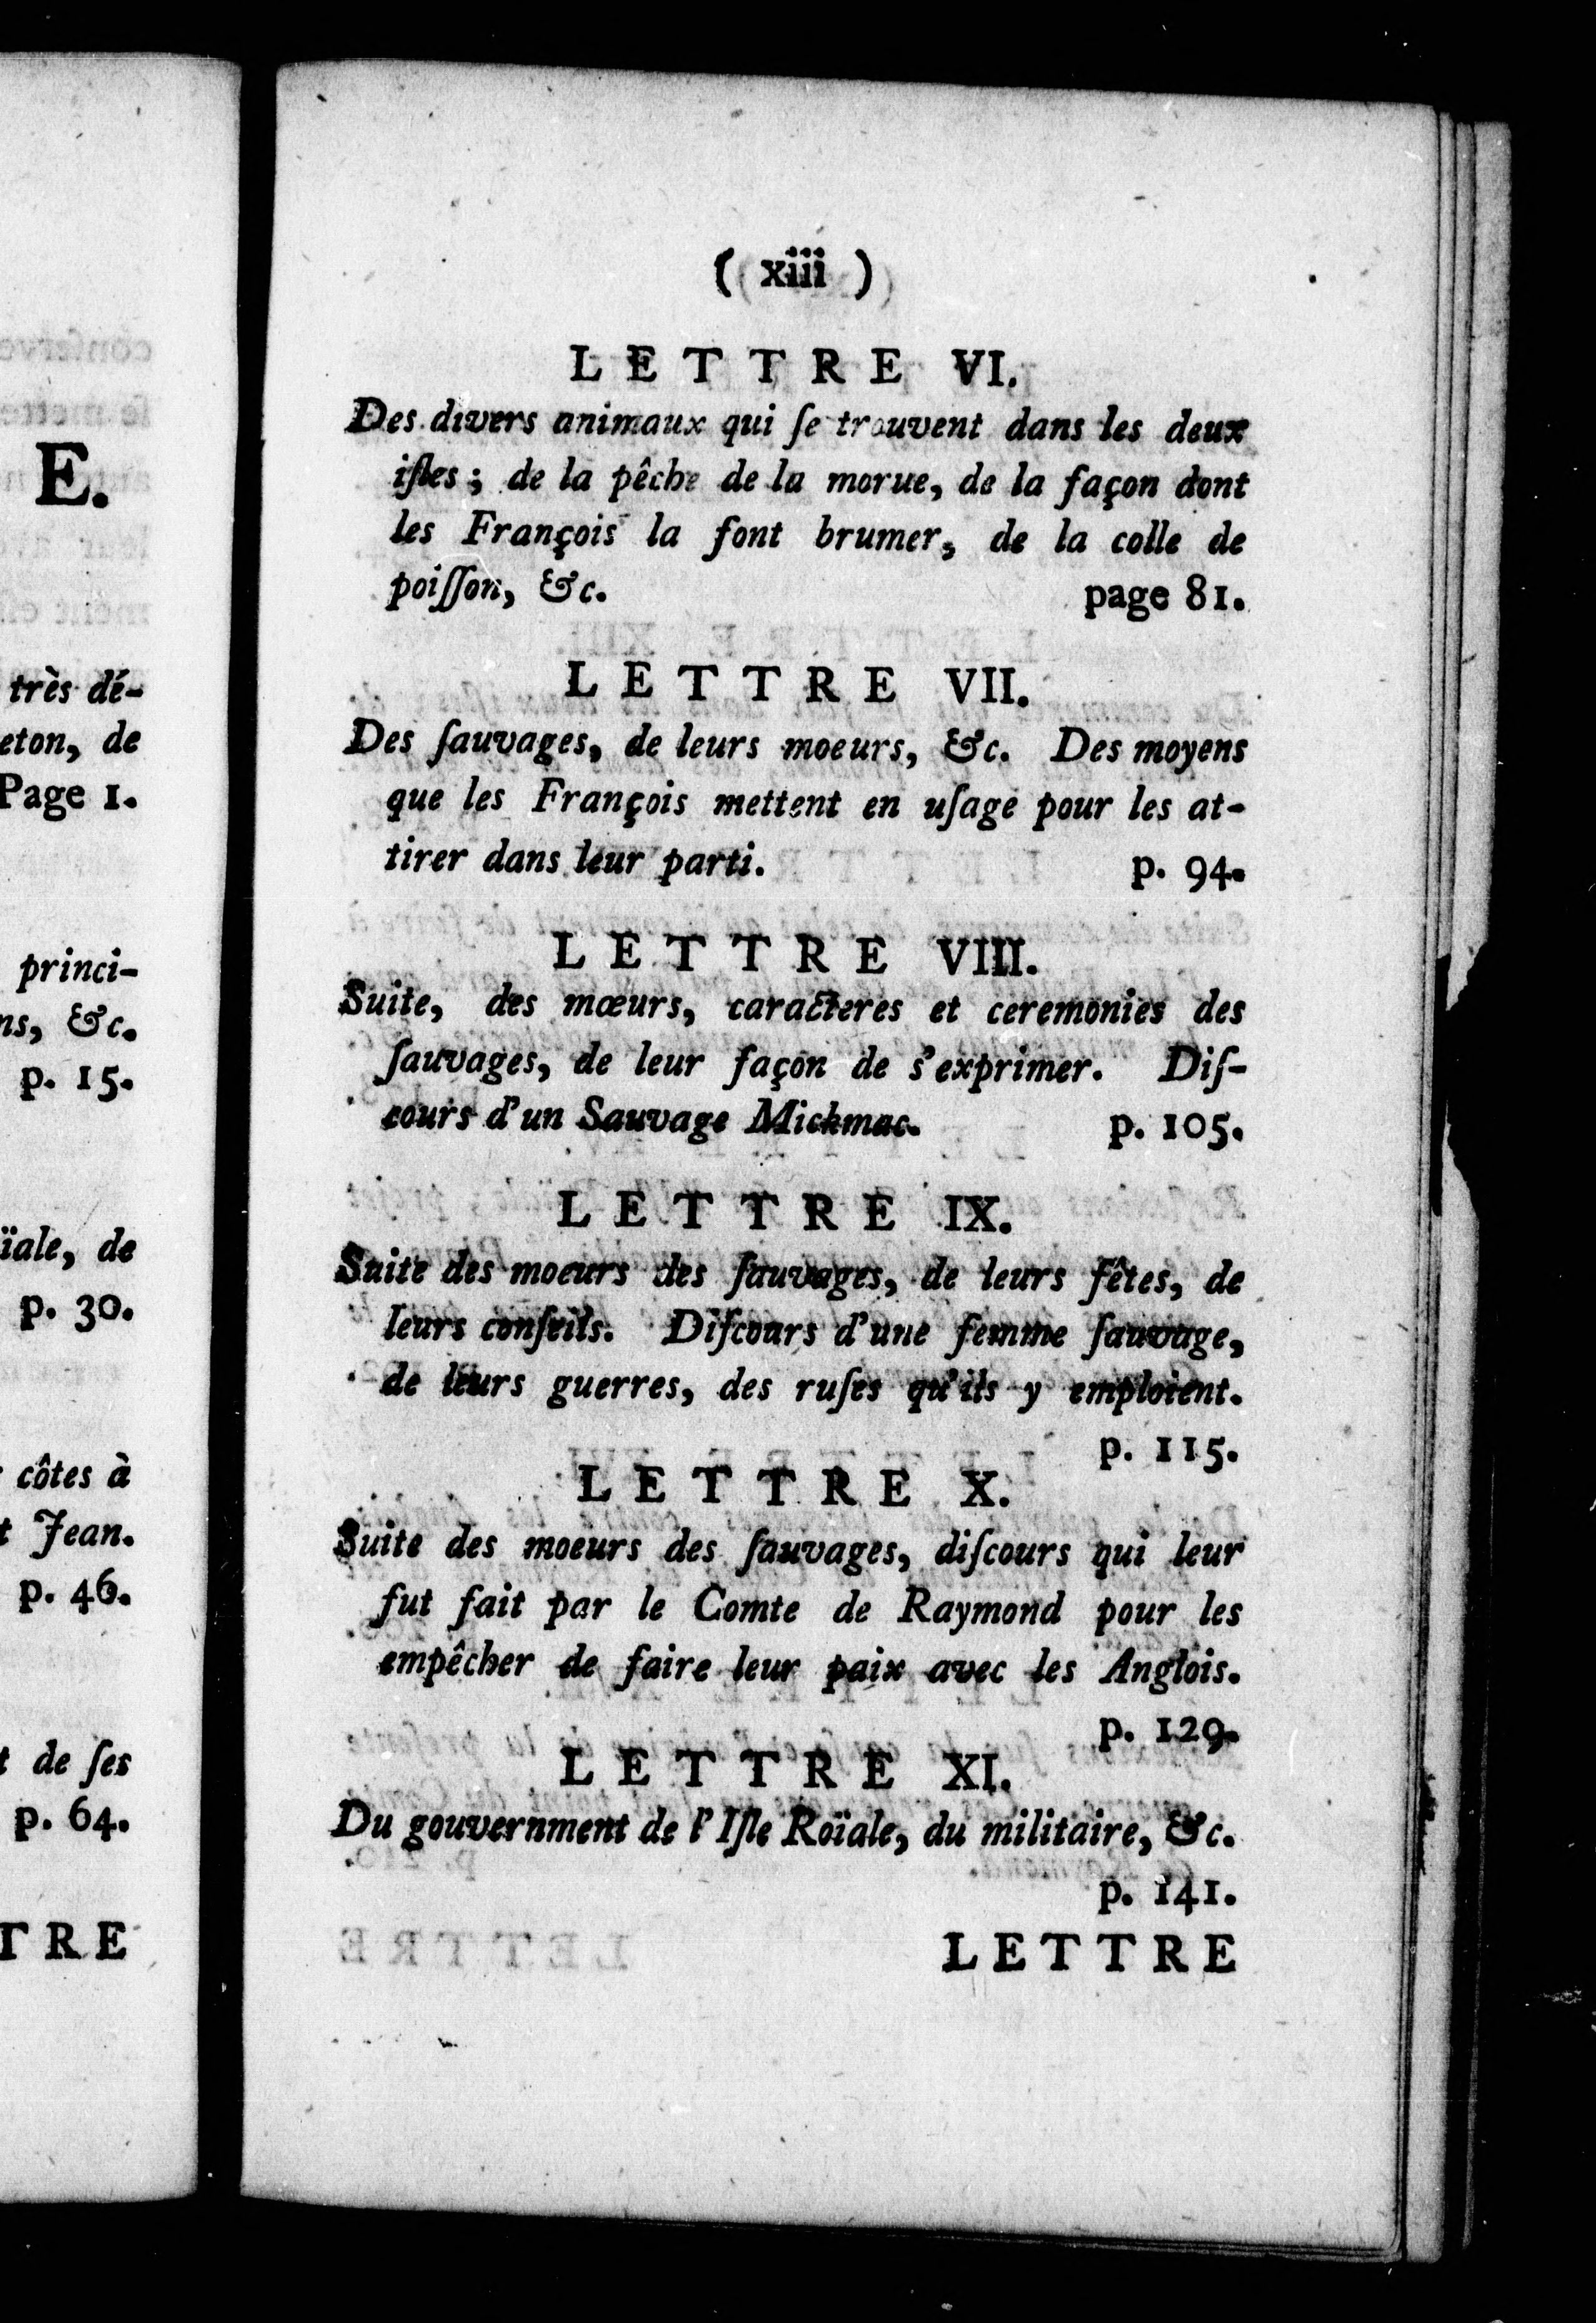 E.
très dé-
eton, de
Page 1.
princi-
ns, &c.
p. 15.
ïale, de
p. 30.
côtes à
t Jean.
p. 46.
t de ſes
p. 64.
TRE
( xiii )
LETTRE VI.
Des divers animaux qui ſe trouvent dans les deux
iſles ; de la pêche de la morue, de la façon dont
les François la font brumer, de la colle de
poiſſon, &c. page 81.
LETTRE VII.
Des ſauvages, de leurs moeurs, &c. Des moyens
que les François mettent en uſage pour les at-
tirer dans leur parti. p. 94.
LETTRE VIII.
Suite, des mœurs, caracteres et ceremonies des
ſauvages, de leur façon de s'exprimer. Diſ-
cours d'un Sauvage Mickmac. p. 105.
LETTRE IX.
Suite des moeurs des ſauvages, de leurs fêtes, de
leurs conſeils. Diſcours d'une femme ſauvage,
de leurs guerres, des ruſes qu'ils y emploient.
p. 115.
LETTRE X.
Suite des moeurs des ſauvages, diſcours qui leur
fut fait par le Comte de Raymond pour les
empêcher de faire leur paix avec les Anglois.
p. 129.
LETTRE XI.
Du gouvernment de l'Iſle Roïale, du militaire, &c.
p. 141.
LETTRE